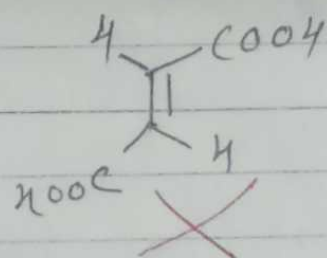 H COOH
H
HOOC